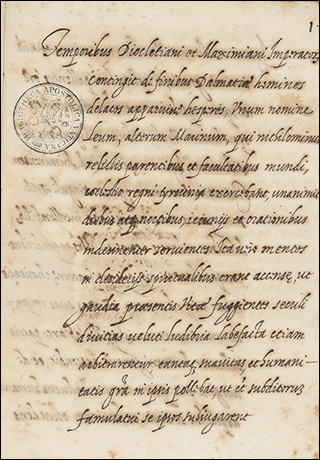 1
Temporibus Diocletiani et Maximiani Imperatorũ
Contingit de finibus Dalmatiæ homines
delatos apparuisse hespites. Vnum nomine
Leum, alterum Marinum, qui nihilominus
relictis parentibus et facultatibus mundi,
regni exercebant, unanimit
diebus atq. noctibus, ieiunijs et orationibus
indesinenter seruientes. Ita uero mentes
in desiderijs spiritualibus erant accensę, ut
gaudia praesentis Vitæ fugientes seculi
diuitias veluti ludibria labefacta etiam
arbitrarentur tantaq. suauitas et humani-
tatis gra in ipsis pollebat ut et subditorum
famulatui se ipsos subiugarent
BIBLIOTHECA APOSTOLICA VATICANA